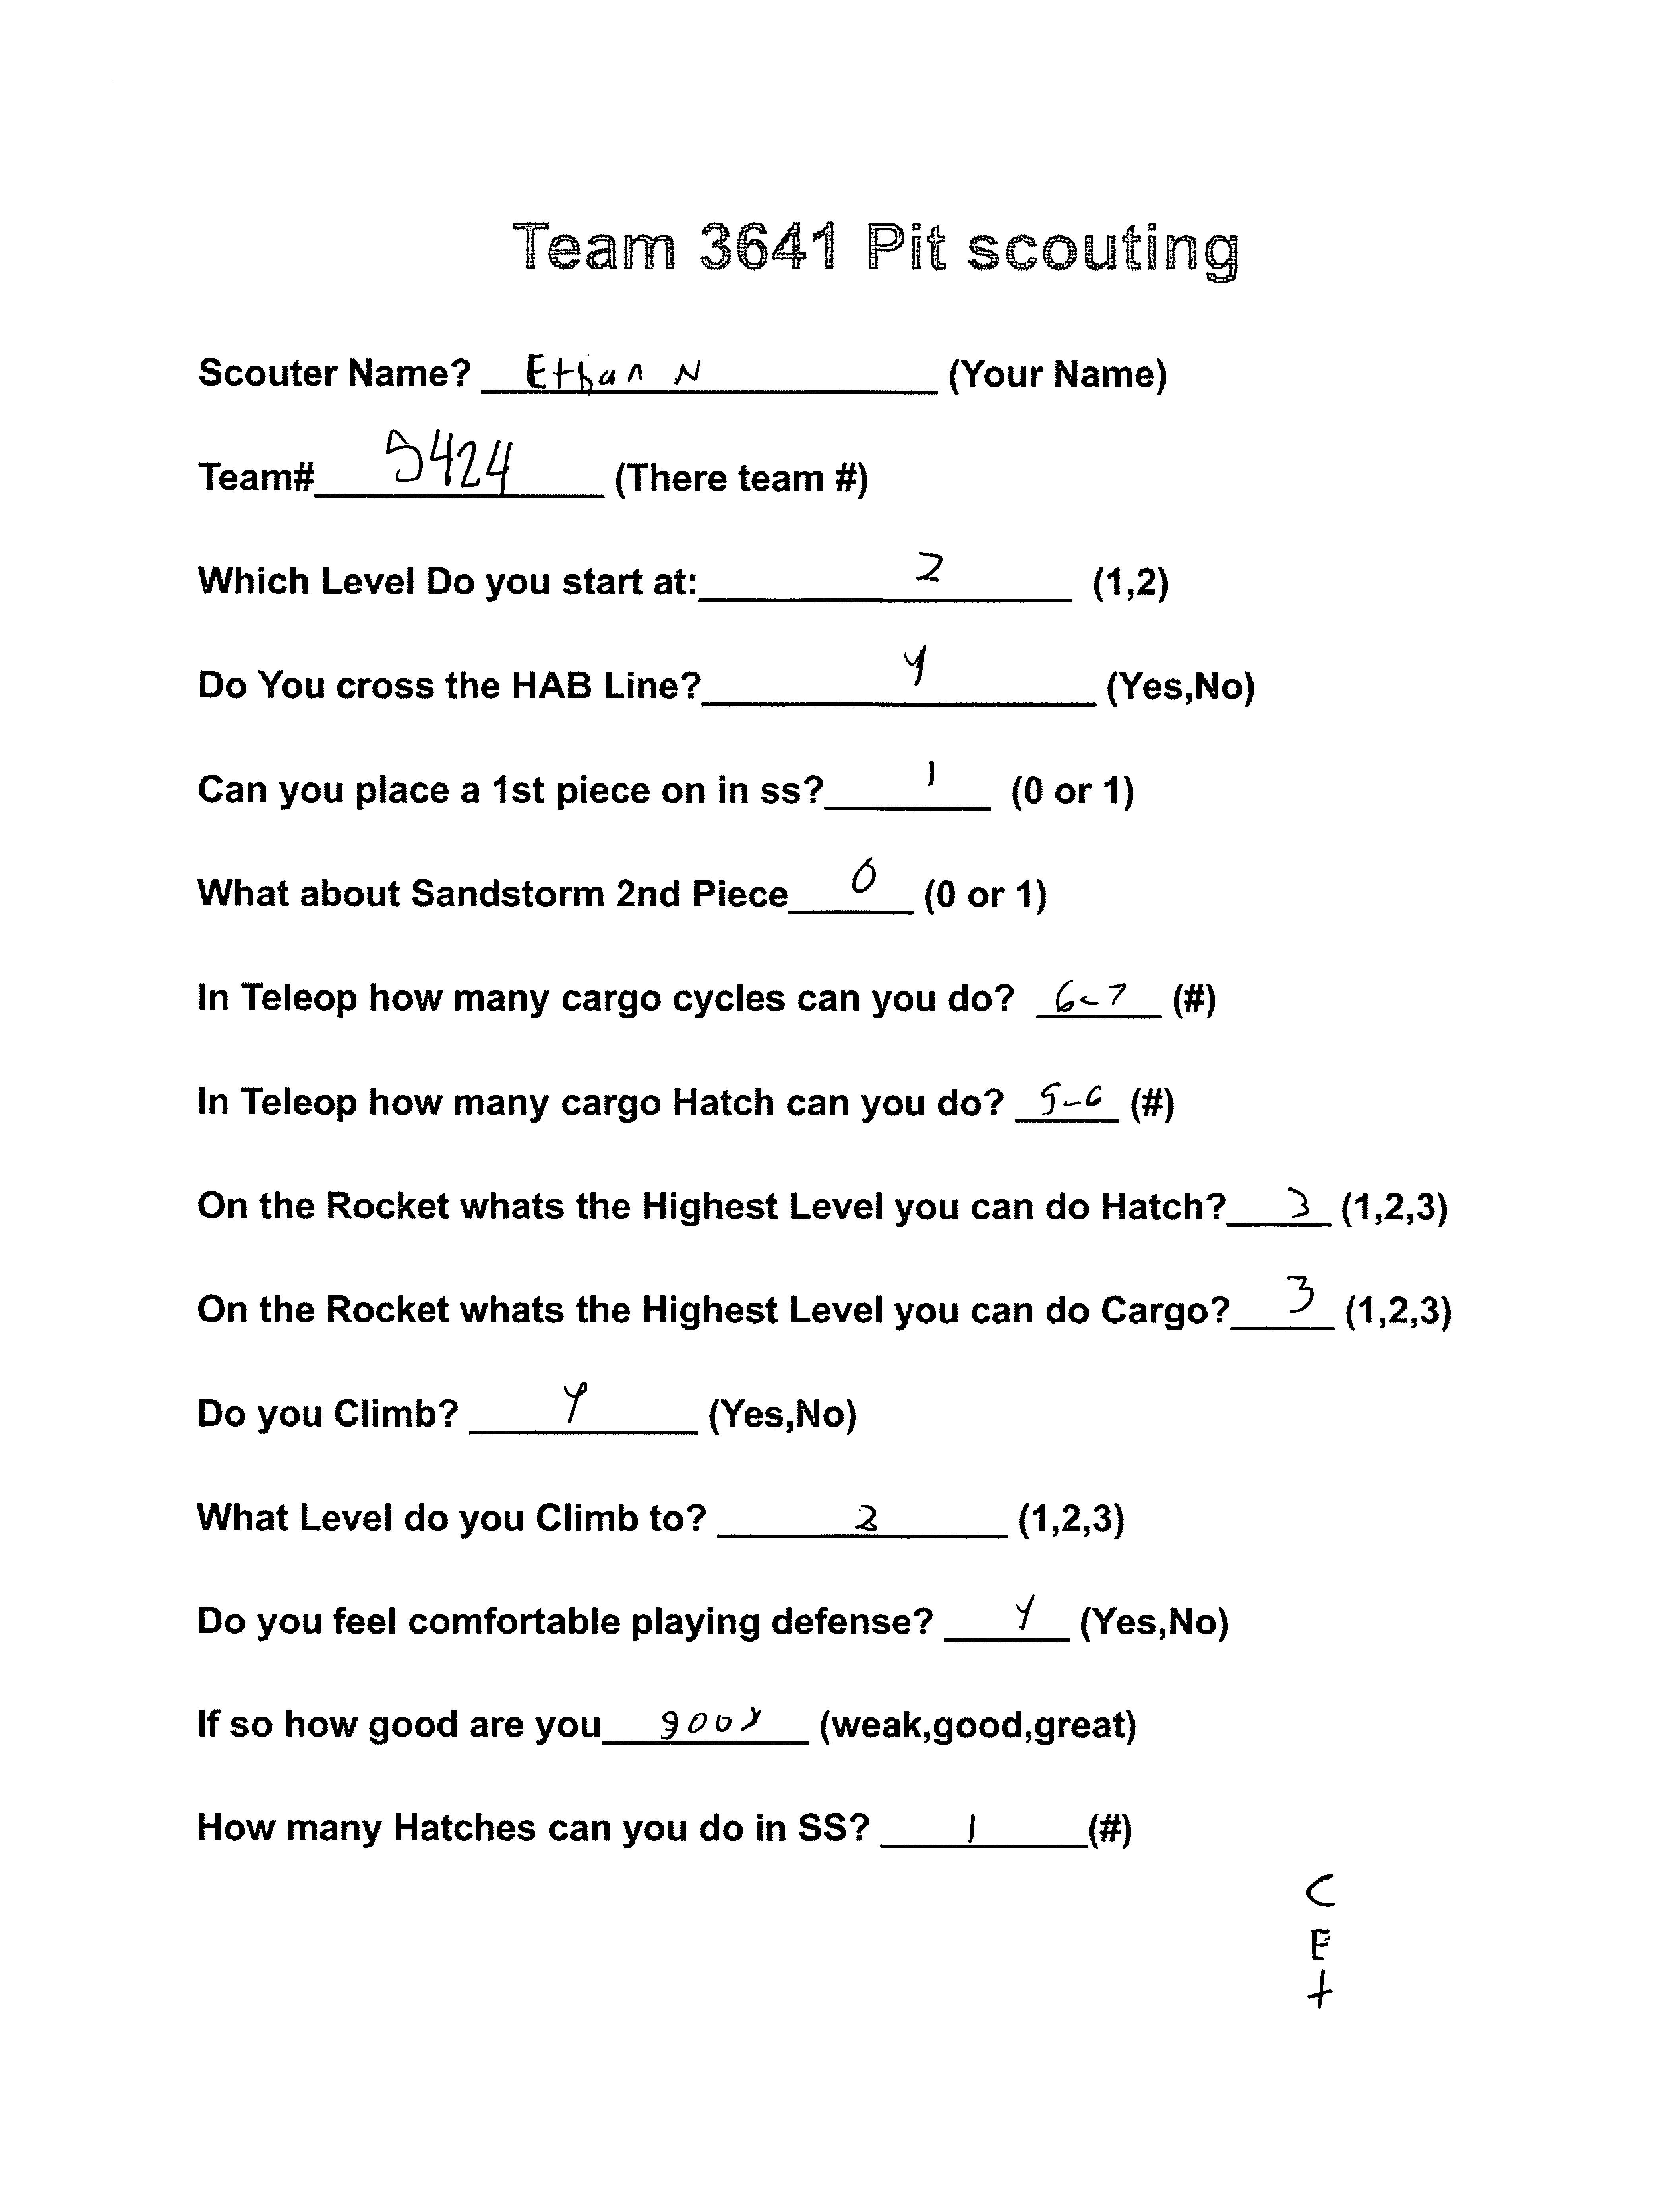 Team 3641 Pit scouting
Scouter Name? Ethan N (Your Name)
Team# 5424 (There team #)
Which Level Do you start at: 2 (1,2)
Do You cross the HAB Line? Y (Yes,No)
Can you place a 1st piece on in ss? 1 (0 or 1)
What about Sandstorm 2nd Piece 0 (0 or 1)
In Teleop how many cargo cycles can you do? 6-7 (#)
In Teleop how many cargo Hatch can you do? 5-6 (#)
On the Rocket whats the Highest Level you can do Hatch? 3 (1,2,3)
On the Rocket whats the Highest Level you can do Cargo? 3 (1,2,3)
Do you Climb? Y (Yes,No)
What Level do you Climb to? (1,2,3)
Do you feel comfortable playing defense? Y (Yes,No)
If so how good are you good (weak,good,great)
How many Hatches can you do in SS? 1 (#)
C
E
t